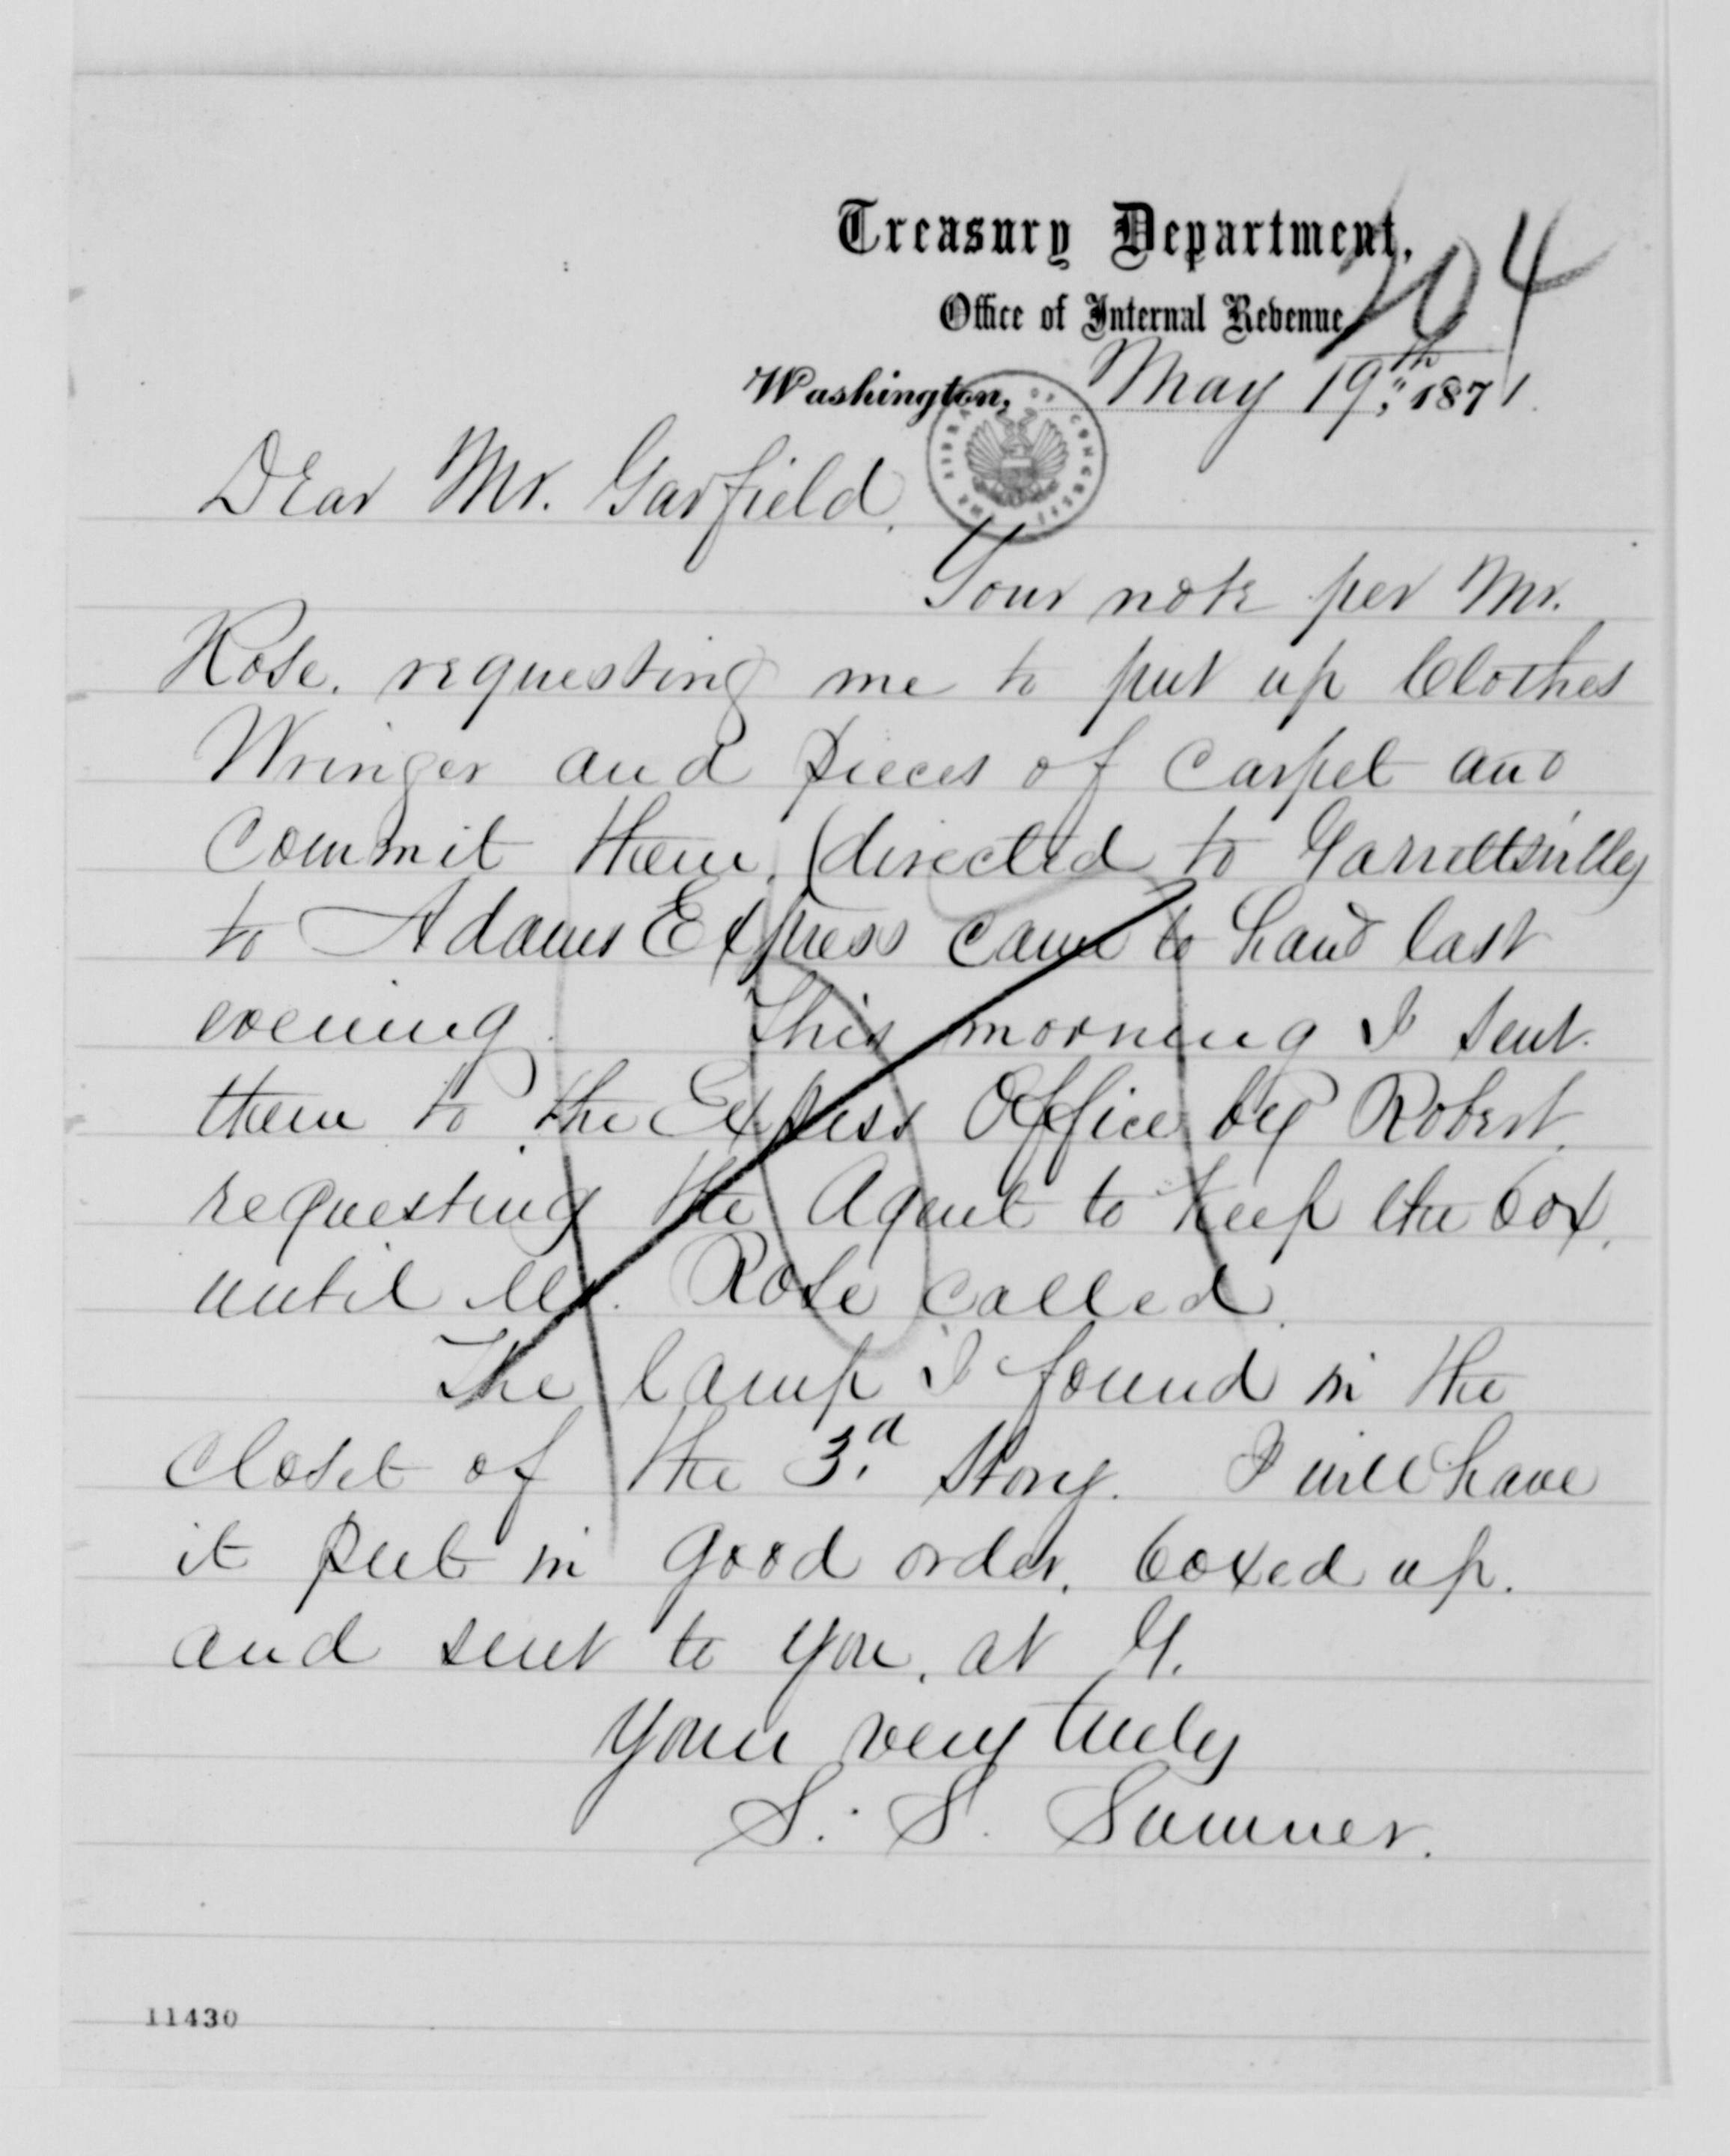 Treasury Department,
104
Office of Internal Revenue
Washington, May 19th, 1871.
THE LIBRARY OF CONGRESS
Dear Mr. Garfield.
Your note per Mr.
Rose. requesting me to put up Clothes
Wringer and pieces of Carpet and
Commit them, (directed to Garrettsville)
to Adams Express came to hand last
evening. This morning I sent
them to the Express Office by Robert.
requesting the Agent to keep the box,
until Mr. Rose called.
The lamp I found in the
Closet of the 3.d Story. I will have
it put in good order, boxed up.
and sent to you, at G.
Yours very truly
S. S. Sumner.
11430